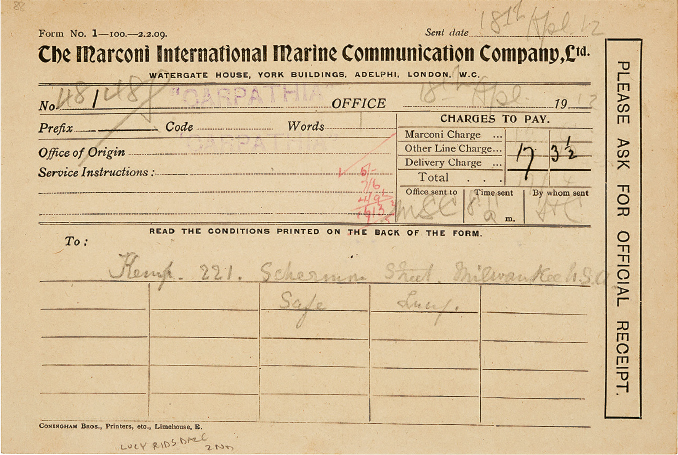 Form No. 1—100.—2.2.09.
Sent date 18th Apl 12
The Marconi International Marine Communication Company, Ltd.
WATERGATE HOUSE, YORK BUILDINGS, ADELPHI, LONDON, W.C.
No. 48/48 "CARPATHIA" OFFICE 18th Apl 1912
Prefix Code Words
"CARPATHIA"
Office of Origin
Service Instructions :
CHARGES TO PAY.
Marconi Charge ...
Other Line Charge...
Delivery Charge ...
Total . . .
17 3½
Office sent to Time sent By whom sent
MSC 8 a m.
READ THE CONDITIONS PRINTED ON THE BACK OF THE FORM.
To :
Kemp. 221. Street. Milwaukee U.S.A.
Safe Lucy.
PLEASE ASK FOR OFFICIAL RECEIPT.
CONINGHAM BROS., Printers, etc., Limehouse, E.
LUCY RIDSDALE